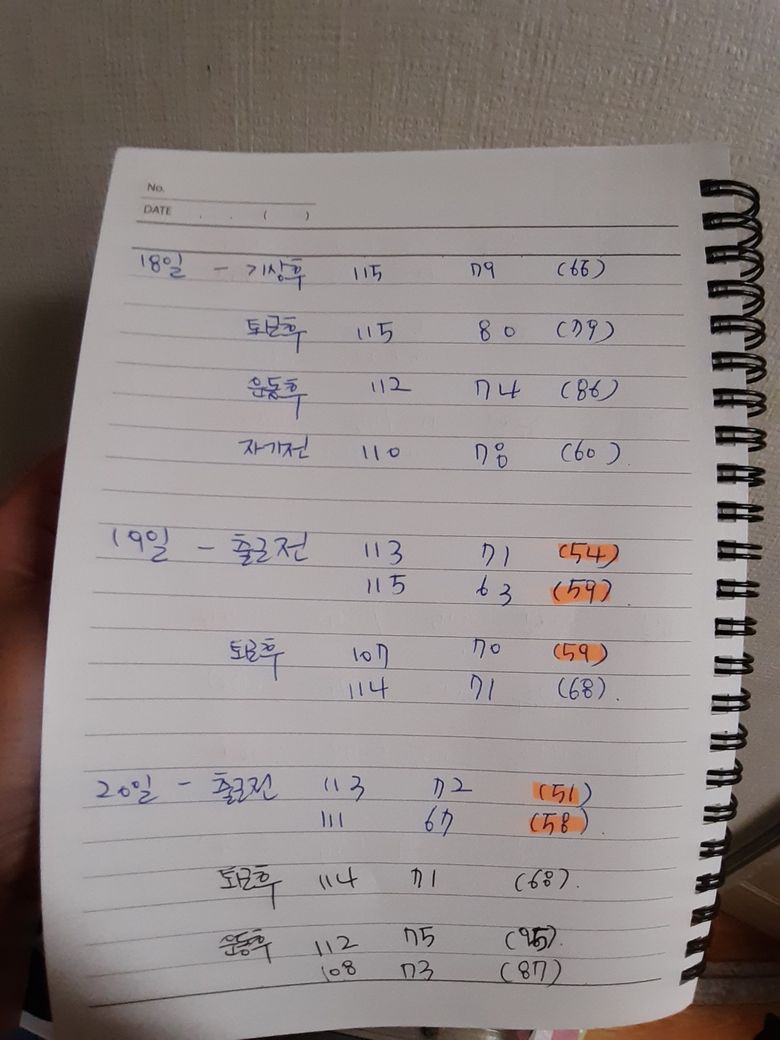 No.
DATE . . ( )
18일 - 기상후 115 79 (66)
퇴근후 115 80 (79)
운동후 112 74 (86)
자기전 110 78 (60)
19일 - 출근전 113 71 (54)
115 63 (59)
퇴근후 107 70 (59)
114 71 (68).
20일 - 출근전 113 72 (51)
111 67 (58)
퇴근후 114 71 (68).
운동후 112 75
108 73 (87)